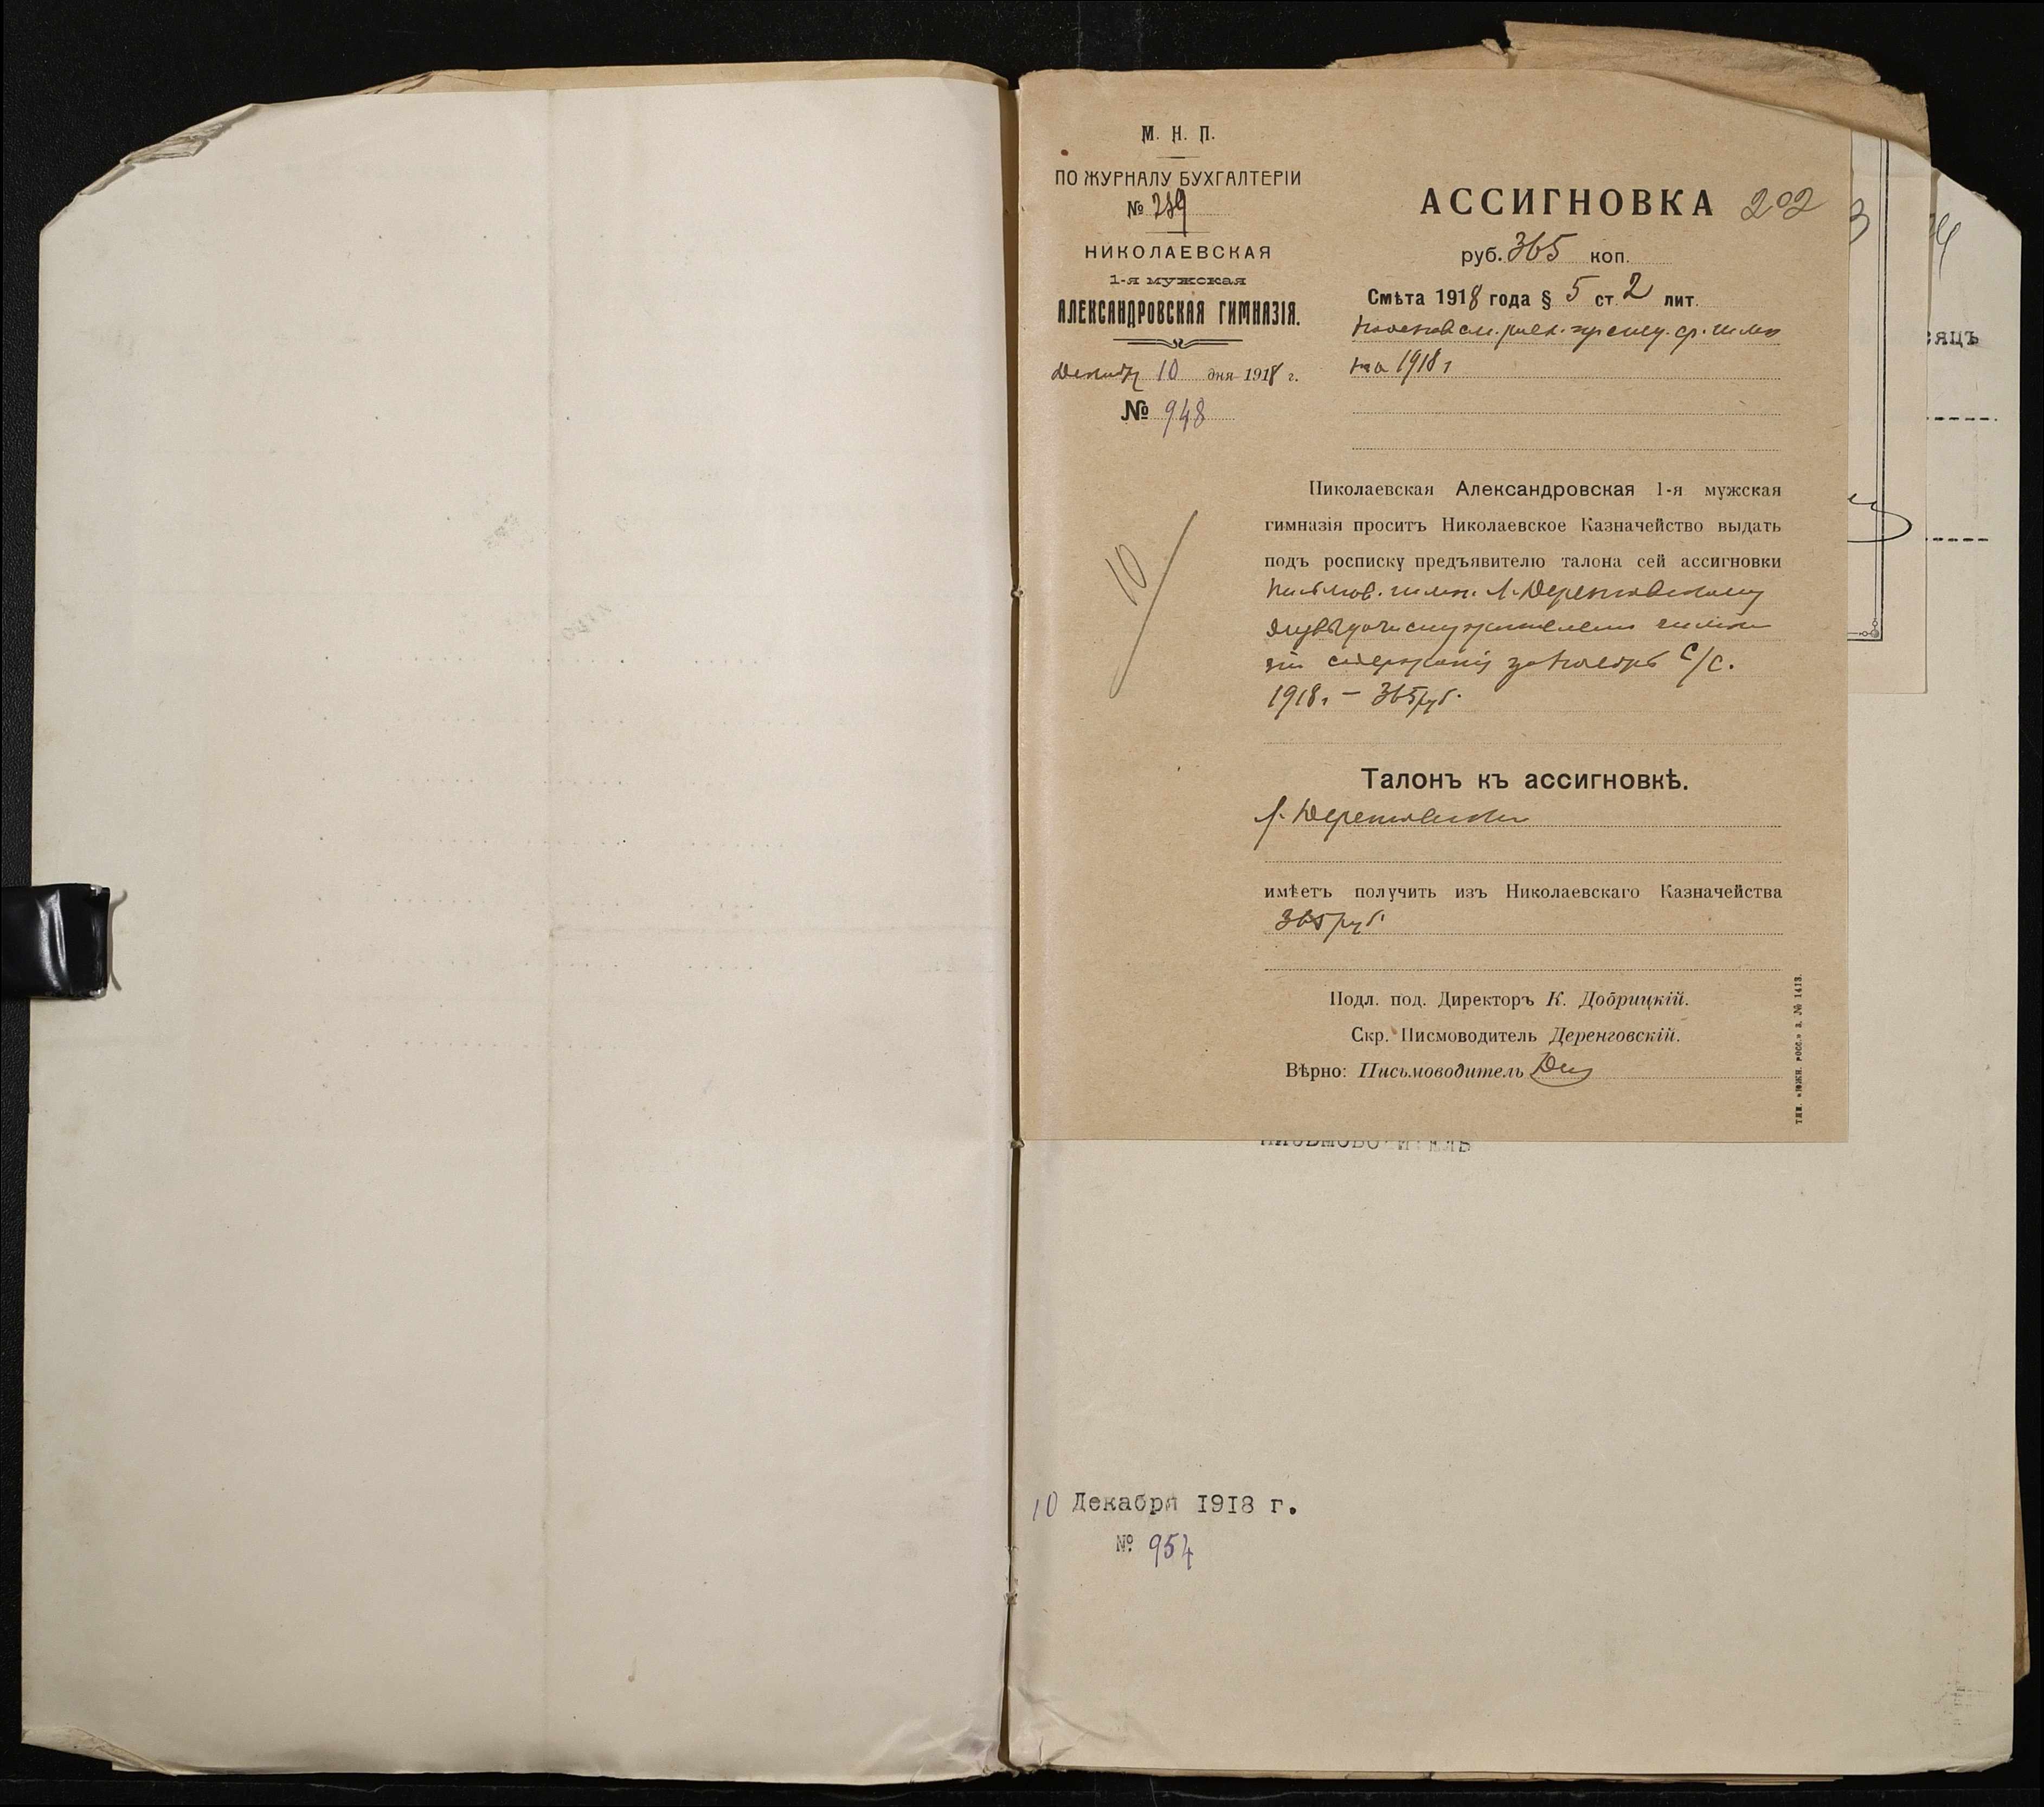 М. Н. П.
ПО ЖУРНАЛУ БУХГАЛТЕРІИ
№ 239
НИКОЛАЕВСКАЯ
1-я мужская
АЛЕКСАНДРОВСКАЯ ГИМНАЗІЯ.
10 дня 1918 г.
№ 948
10
АССИГНОВКА 202
руб. 365 коп.
Смѣта 1918 года § 5 ст. 2 лит.
на 1918 г
Николаевская Александровская 1-я мужская
гимназія проситъ Николаевское Казначейство выдать
подъ росписку предъявителю талона сей ассигновки
Письмов. гимн. Л. Деренговскому
для выдачи служителям гимна
зіи содержанія за Ноябрь с/с.
1918 г – 365 руб.
Талонъ къ ассигновкѣ.
Л. Деренговскій
имѣетъ получить изъ Николаевскаго Казначейства
365 руб.
Подл. под. Директоръ К. Добрицкій.
Скр. Писмоводитель Деренговскій.
Вѣрно: Письмоводитель
ТИП. «ЮЖН. РОСС.» З. № 1413.
СЯЦЪ
ПИСЬМОВОДИТЕЛЬ
10 Декабря 1918 г.
№ 954